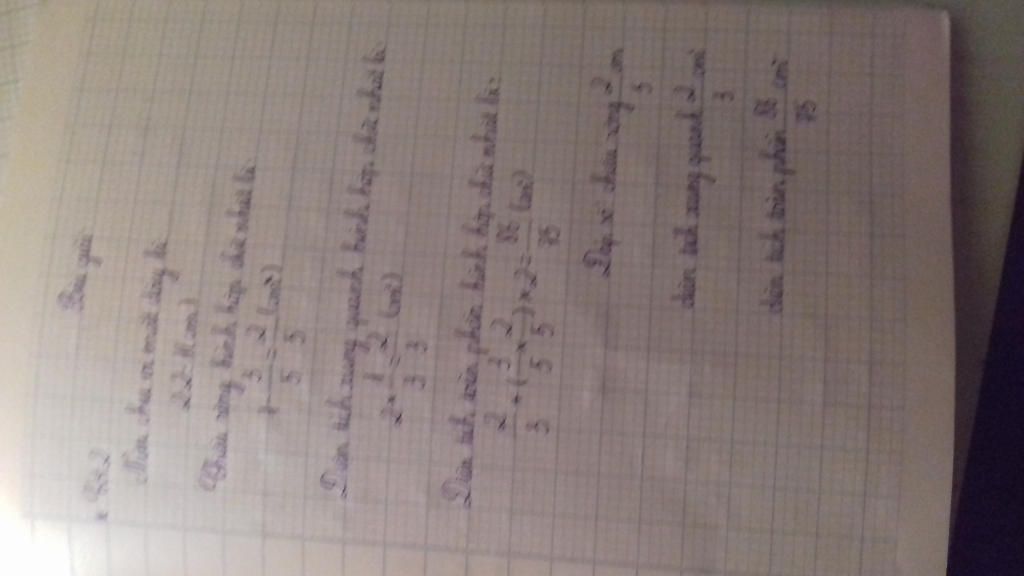 Bài giải
* Bài 2
Nửa chu vi mặt đáy là
2:2=1(cm)
Chiều rộng hình hộp chữ nhật là:
1-3/5=2/5(cm)
Diện tích xung quanh hình hộp chữ nhật là
2×1/3=2/3(cm²)
Diện tích toàn phần hình hộp chữ nhật là:
2/3+(3/5×2/5)×2=86/75(cm²)
Đáp số chiều rộng 2/5 cm
diện tích xung quanh 2/3 cm²
diện tích toàn phần 86/75 cm²